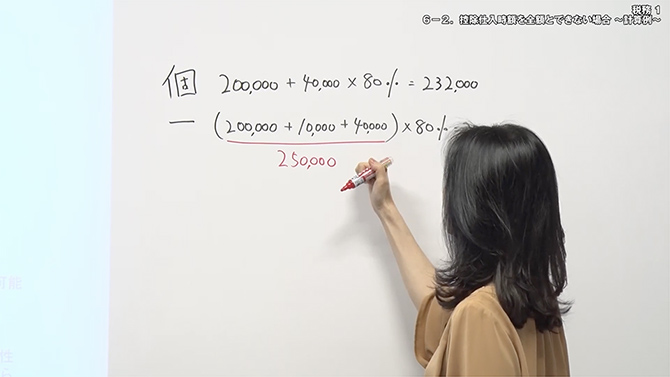 税務1
6－2．控除仕入時額を全額とできない場合 ～計算例～
個 200,000 + 40,000 × 80% = 232,000
一 (200,000 + 10,000 + 40,000) × 80%
250,000
性